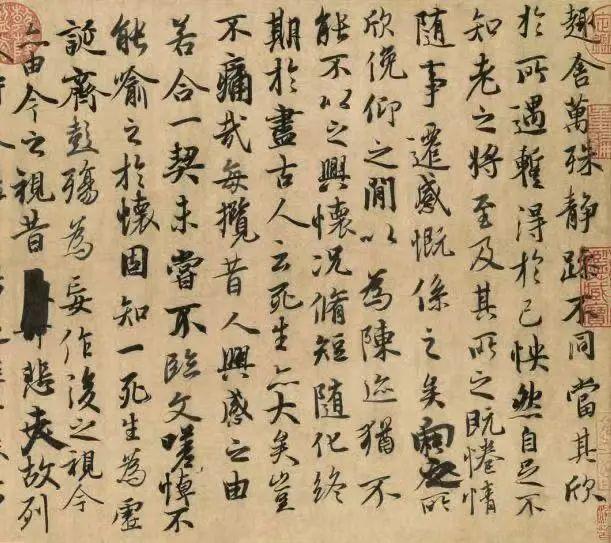 趣舍萬殊靜躁不同當其欣
於所遇蹔得於己怏然自足不
知老之將至及其所之既惓情
隨事遷感慨係之矣向之所
欣俛仰之閒以為陳迹猶不
能不以之興懷況脩短隨化終
期於盡古人云死生亦大矣豈
不痛哉每攬昔人興感之由
若合一契未嘗不臨文嗟悼不
能喻之於懷固知一死生為虛
誕齊彭殤為妄作後之視今
亦由今之視昔悲夫故列